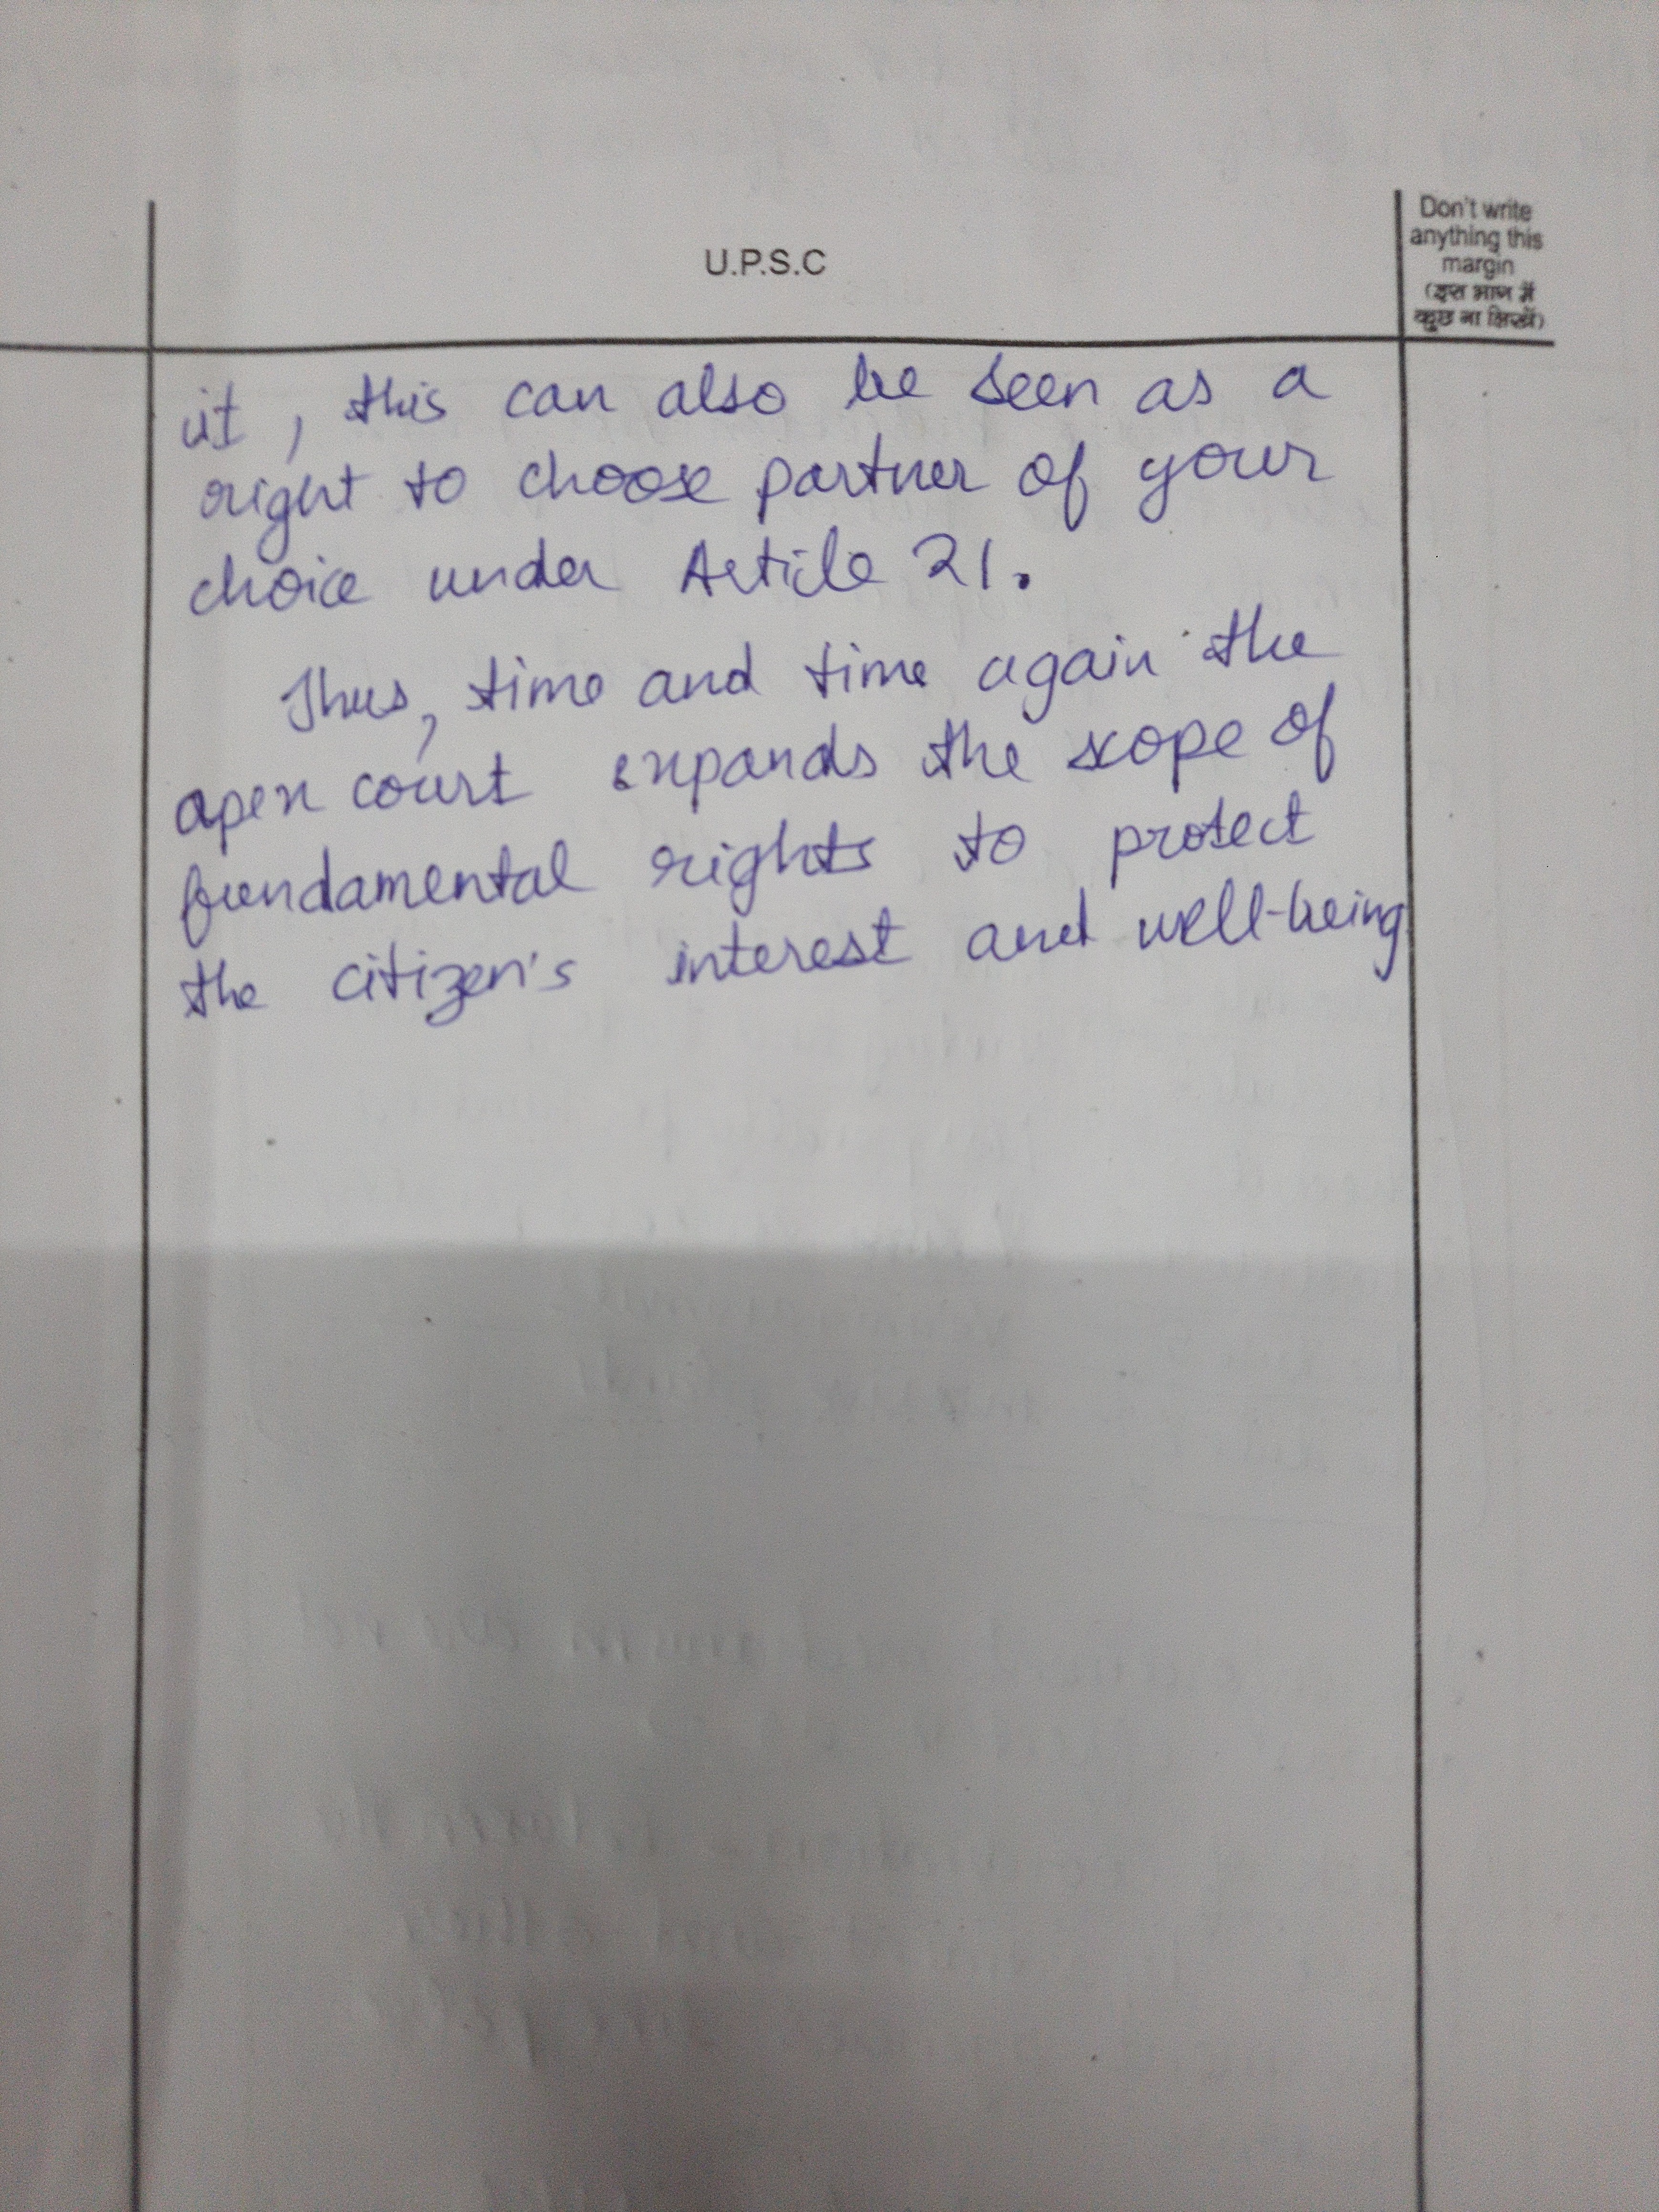 U.P.S.C
Don't write
anything this
margin
(इस भाग में
कुछ ना लिखें)
it, this can also be seen as a
right to choose partner of your
choice under Article 21.
Thus, time and time again the
apex court expands the scope of
fundamental rights to protect
the citizen's interest and well-being